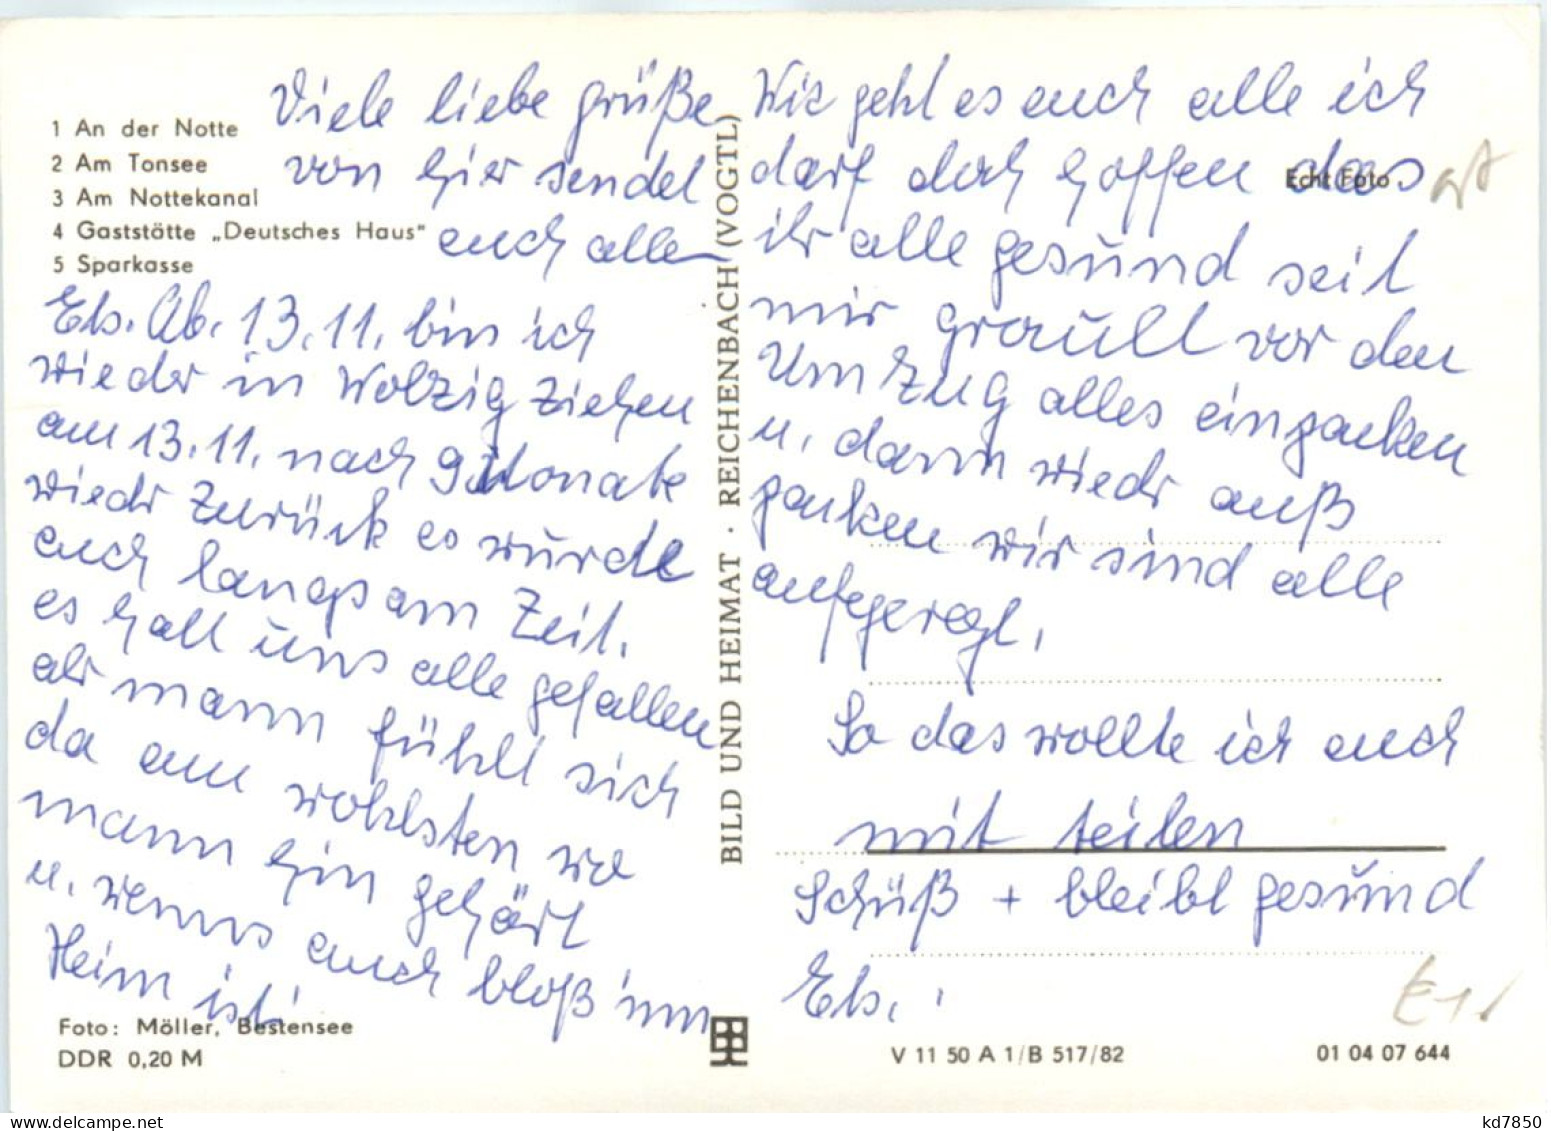 1 An der Notte
2 Am Tonsee
3 Am Nottekanal
4 Gaststätte „Deutsches Haus“
5 Sparkasse
Viele liebe grüße
von hier sendet
euch allen
Els. Ab. 13.11. bin ich
wieder in Wolzig ziehen
am 13.11. nach 9 Monate
wiedr Zurück es wurde
auch langsam Zeit.
es hatt uns alle gefallen
abr mann fühlt sich
da am wohlsten wo
mann hin gehört
u. wenns auch bloß 'nm
Heim ist
Foto: Möller, Bestensee
DDR 0,20 M
BILD UND HEIMAT · REICHENBACH (VOGTL)
Echt Foto
Wie geht es euch alle ich
darf doch hoffen das
ihr alle gesund seit
mir grault vor den
Umzug alles einpacken
u. dann wiedr auß
packen wir sind alle
aufgeregt.
So das wollte ich euch
mit teilen
Schüß + bleibt gesund
Els.
V 11 50 A 1/B 517/82
01 04 07 644
kd7850